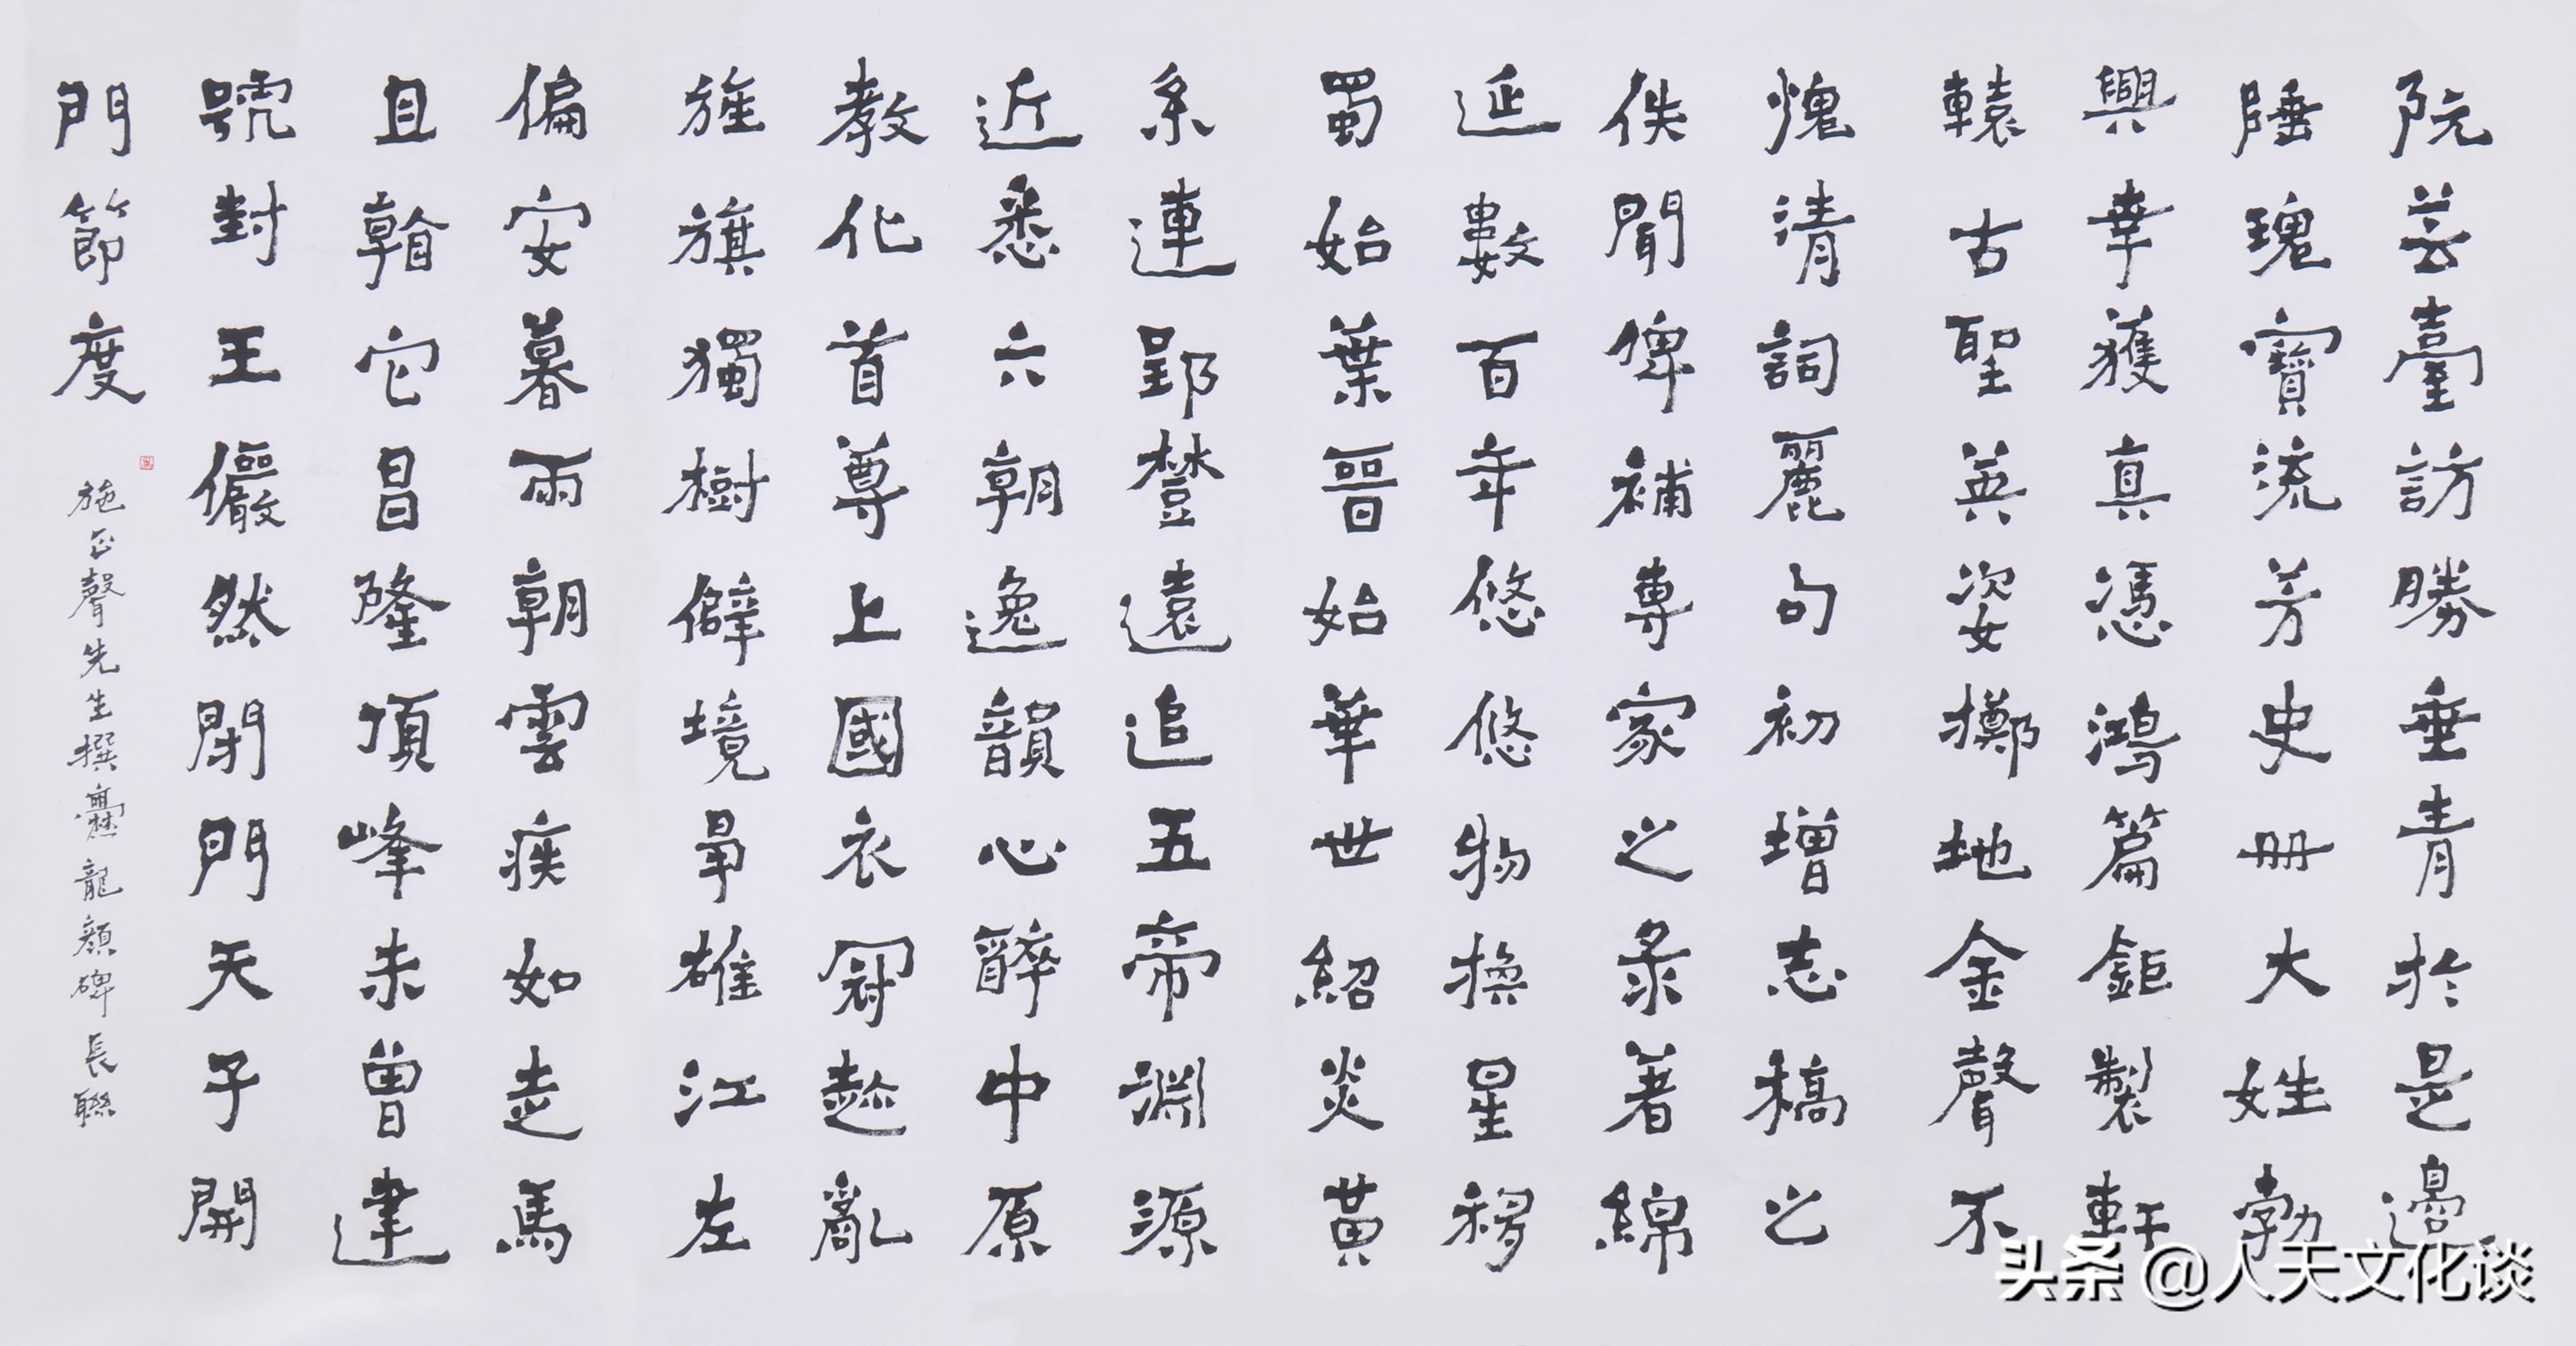 阮芸臺訪勝垂青於是邊
陲瑰寶流芳史册大姓勃
興幸獲真憑鴻篇鉅製軒
轅古聖英姿擲地金聲不
愧清詞麗句初增志稿之
佚聞俾補專家之彔著綿
延數百年悠悠物換星移
蜀始葉晉始華世紹炎黃
系連郢楚遠追五帝淵源
近悉六朝逸韻心醉中原
教化首尊上國衣冠趁亂
旌旗獨樹僻境爭雄江左
偏安暮雨朝雲疾如走馬
且翰它昌隆項峰未曾建
號對王儼然閉門天子開
門節度
施正聲先生撰爨龍顏碑長聯
头条 @人天文化谈